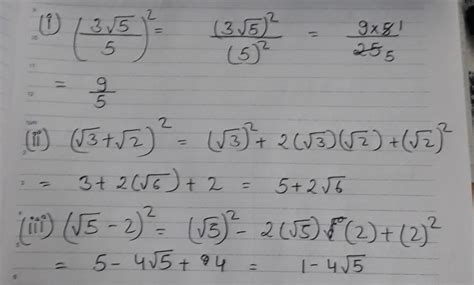 (i) (3√5/5)² = (3√5)²/(5)² = 9×5̶ 1/2̶5̶ 5
= 9/5
(ii) (√3+√2)² = (√3)² + 2(√3)(√2) + (√2)²
= 3 + 2(√6) + 2 = 5 + 2√6
(iii) (√5 - 2)² = (√5)² - 2(√5)(2) + (2)²
= 5 - 4√5 + 4 = 1 - 4√5